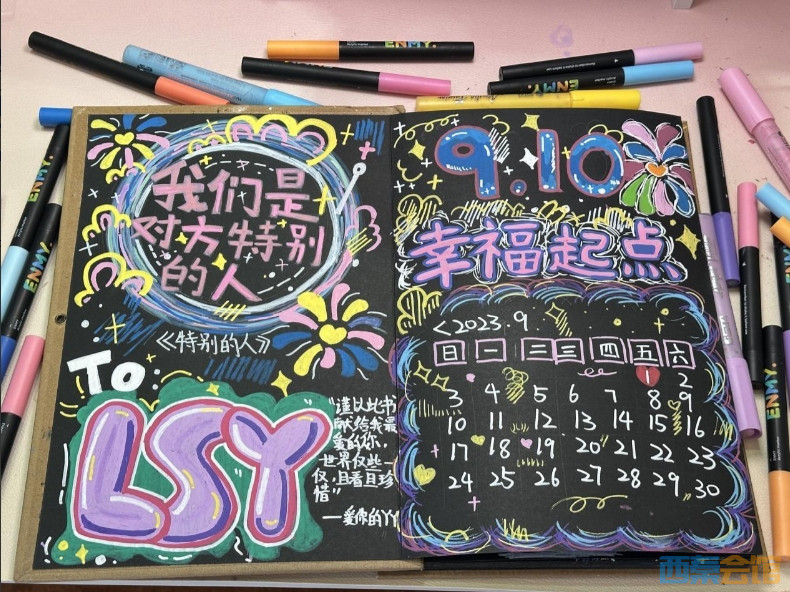 我们是
对方特别
的人
《特别的人》
To
LSY
"谨以此书
献给我最
爱的你,
世界仅些一
仅,且看且珍
惜"
—爱你的YY
9.10
幸福起点
<2023.9
日 一 二 三 四 五 六
1 2
3 4 5 6 7 8 9
10 11 12 13 14 15 16
17 18 19 20 21 22 23
24 25 26 27 28 29 30
ENMY.
ENMY.
ENMY.
ENMY.
ENMY.
ENMY.
ENMY.
西秦会馆